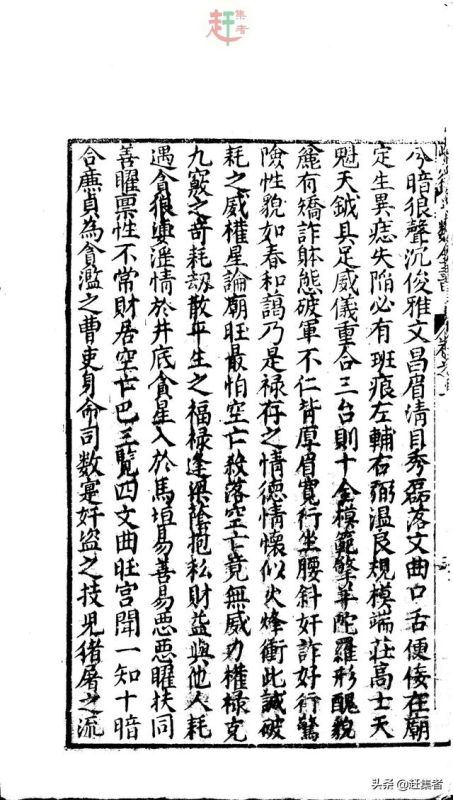 赶集者
兮暗狼聲沉俊雅文昌眉清目秀磊落文曲口舌便佞在廟
定生異痣失陷必有班痕左輔右弼温良規模端莊高士天
魁天鉞具足威儀重合三台則十全模範擎羊陀羅形醜貌
麄有矯詐躰態破軍不仁背厚眉寬行坐腰斜奸詐好行驚
險性貌如春和藹乃是禄存之情德情懷似火烽衝此誠破
耗之威權星論廟旺最怕空亡殺落空亡竟無威力權禄克
九竅之奇耗刼散平生之福禄逢梁蔭抱私財益與他人耗
遇貪狼逞淫情於井底貪星入於馬垣易善易惡惡曜扶同
善曜禀性不常財居空亡巴三覽四文曲旺宮聞一知十暗
合廉貞為貪濫之曹吏身命司数寔奸盗之技児猪屠之流
头条 @赶集者